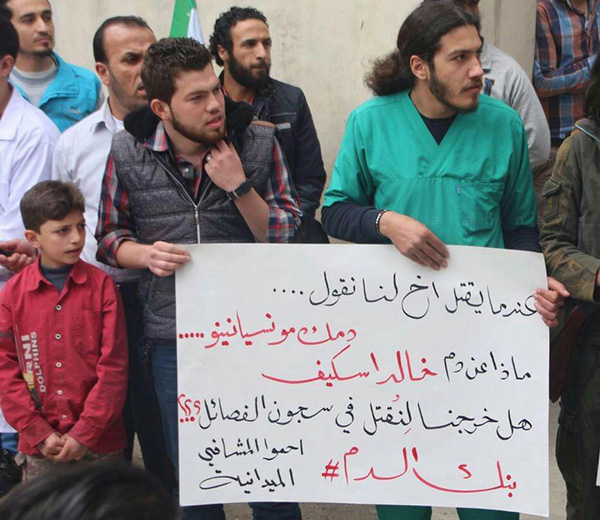 عندما يقتل اخ لنا نقول ....
دمك مو نسيانينو .....
ماذا عن دم خالد اسكيف
هل خرجنا لنُقتل في سجون الفصائل ؟؟!!
احموا المشافي
الميدانية
#بنك الدم
DOLPHINS